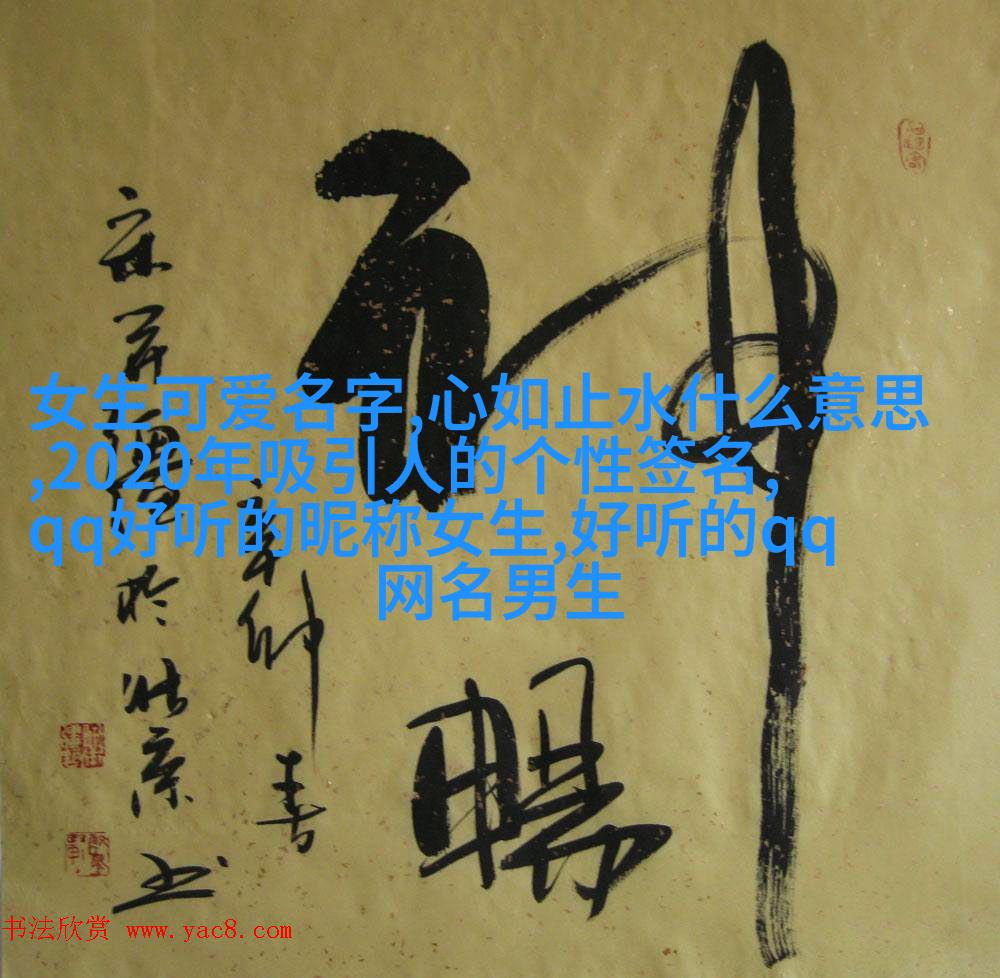 女生可爱名字,心如止水什么意思
,2020年吸引人的个性签名,
qq好听的昵称女生,好听的qq
网名男生
神
暢
年仲春
於北京书
书法欣赏 www.yac8.com